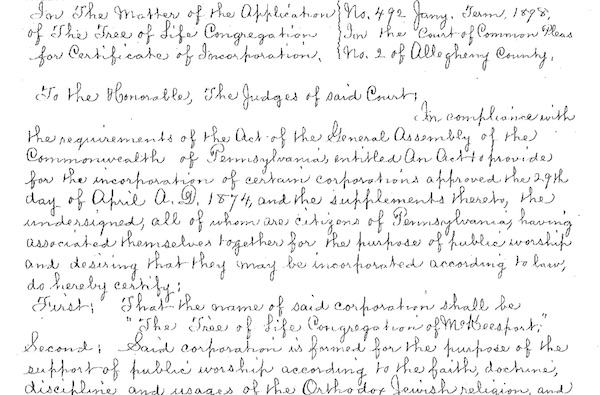 In The Matter of the Application } No. 492 Jany. Term, 1898,
of The Tree of Life Congregation } In the Court of Common Pleas
for Certificate of Incorporation. } No. 2 of Allegheny County.
To the Honorable, The Judges of said Court:
In compliance with
the requirements of the Act of the General Assembly of the
Commonwealth of Pennsylvania, entitled An Act to provide
for the incorporation of certain corporations approved the 29th
day of April A.D. 1874, and the supplements thereto, the
undersigned, all of whom are citizens of Pennsylvania, having
associated themselves together for the purpose of public worship
and desiring that they may be incorporated according to law,
do hereby certify:
First: That the name of said corporation shall be
"The Tree of Life Congregation of McKeesport,"
Second: Said corporation is formed for the purpose of the
support of public worship according to the faith, doctrine,
discipline and usages of the Orthodox Jewish religion, and